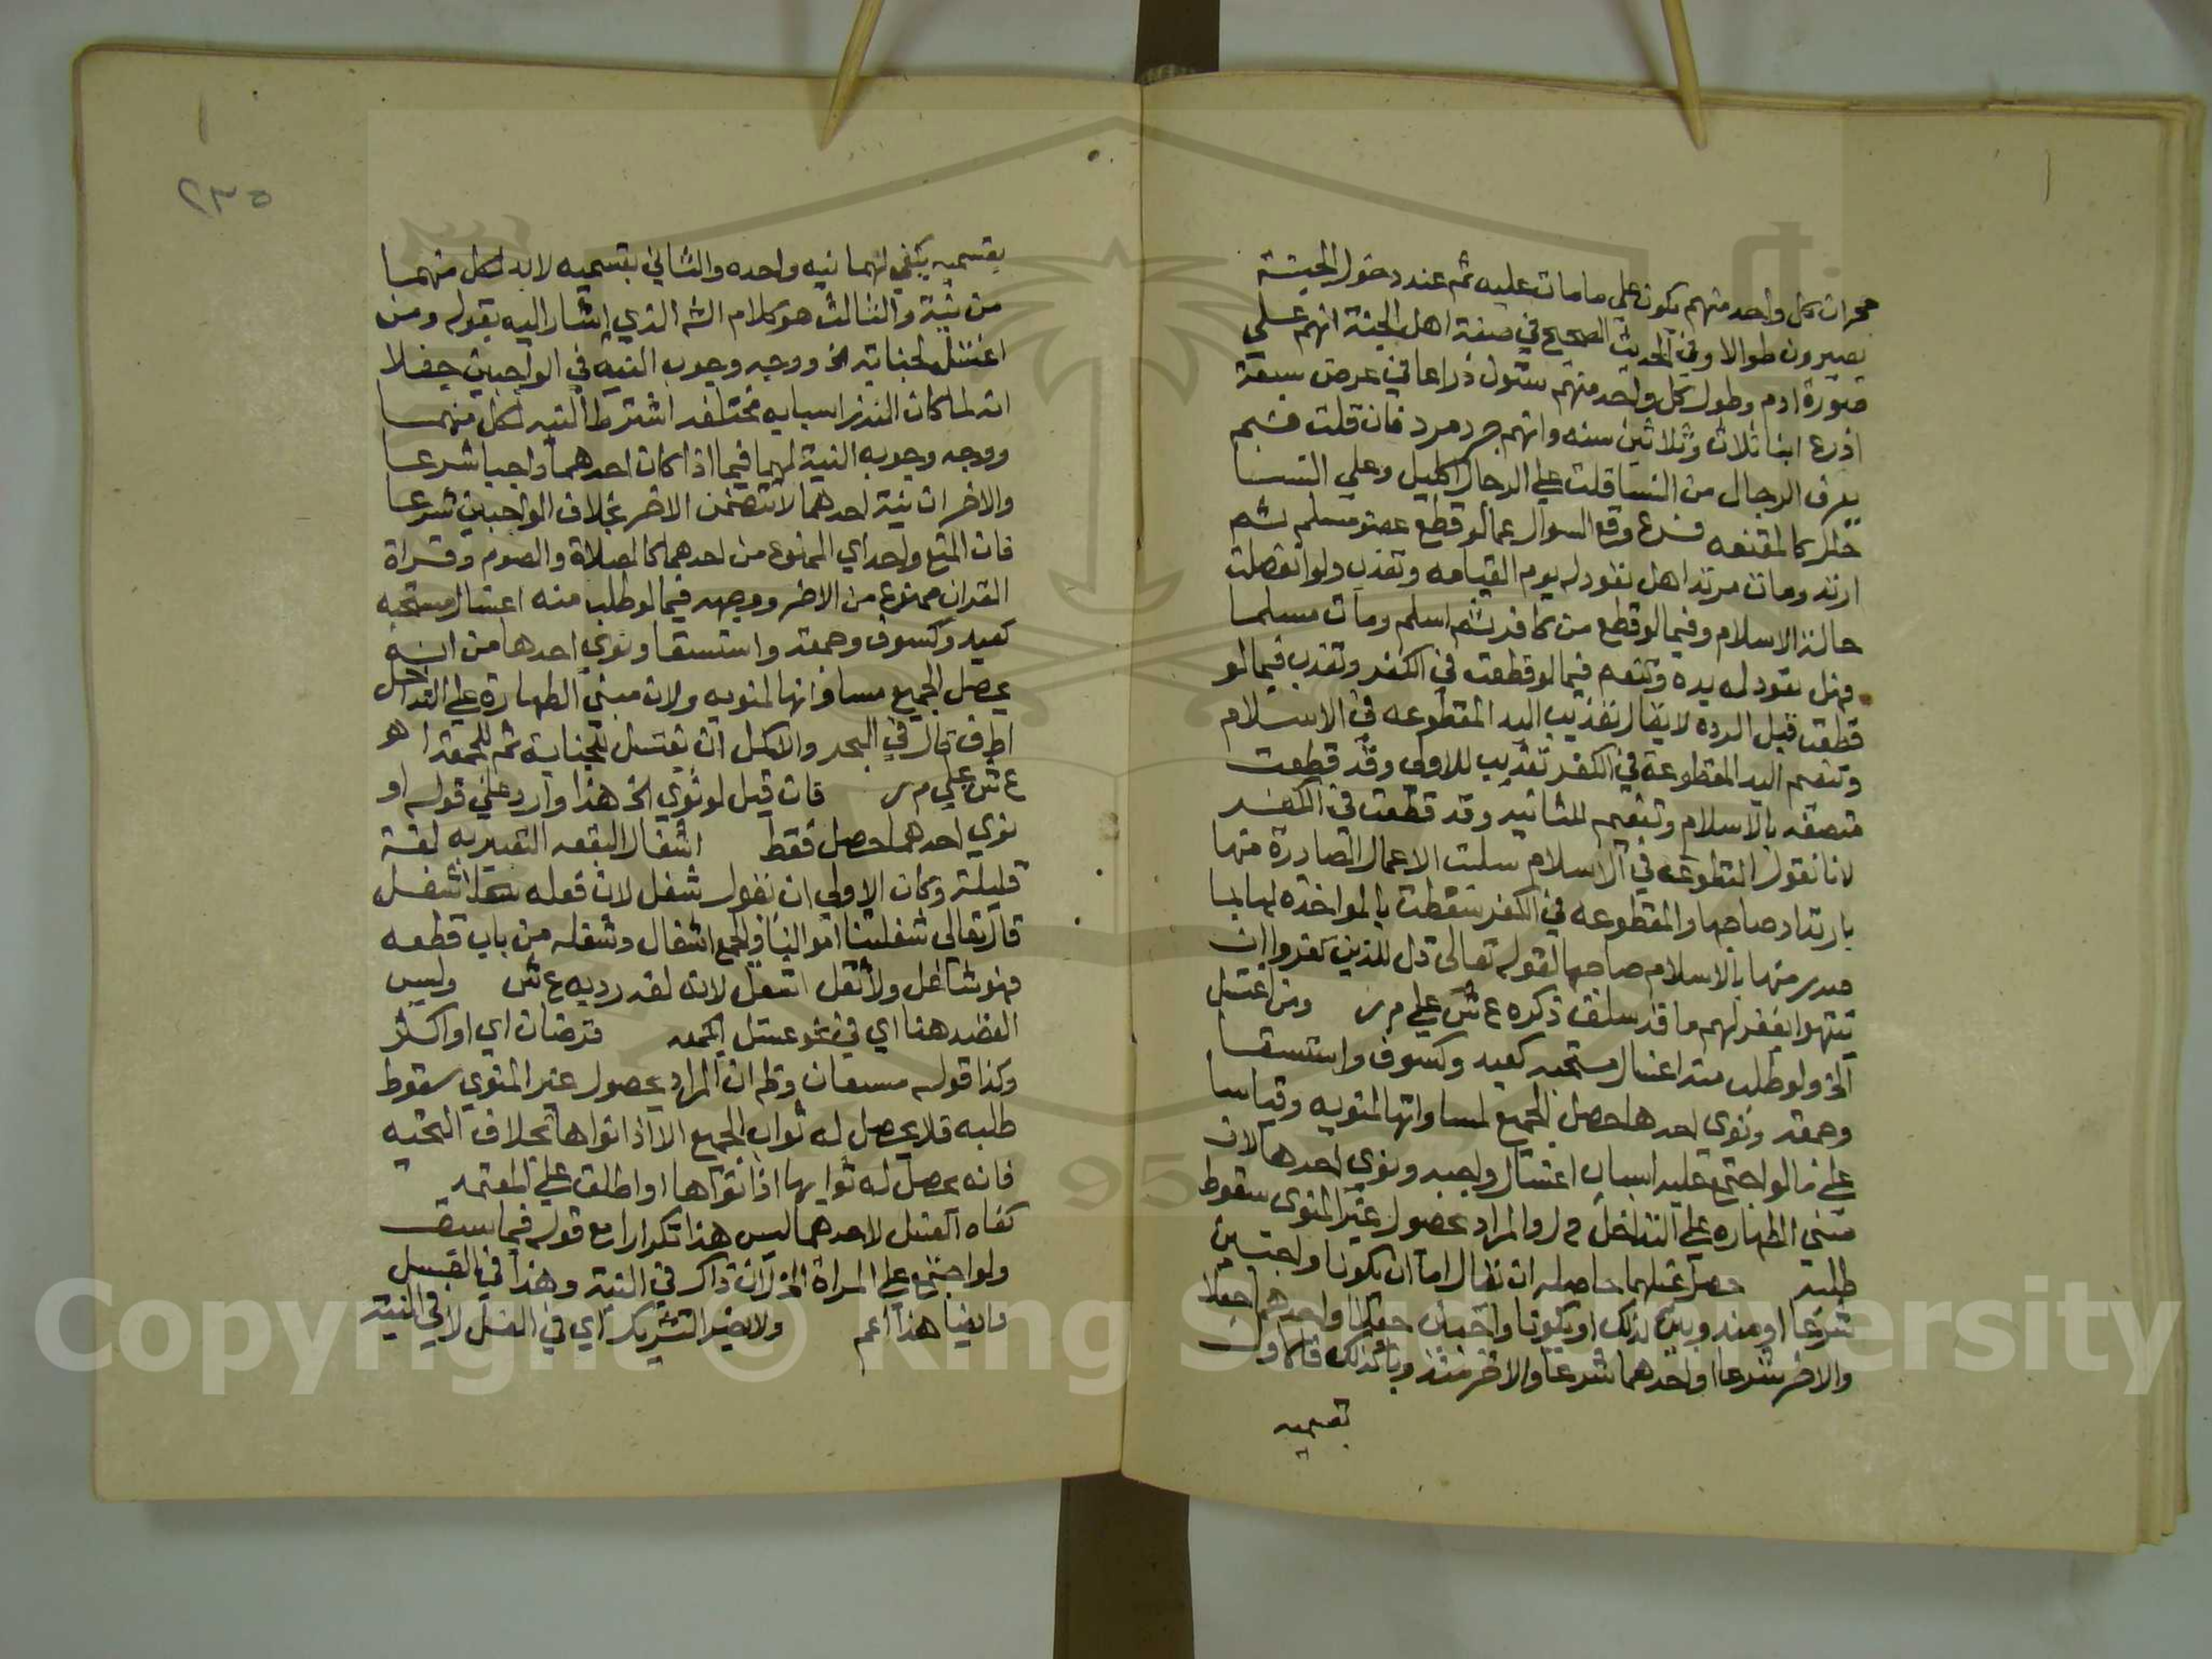 كل واحد منهم يكون علي ما مات عليه ثم عند دخول الجنة
يصيرون طوالا وفي الحديث الصحيح في صفة اهل الجنة انهم علي
صورة ادم وطول كل واحد منهم ستون ذراعا في عرض سبعة
اذرع ابنا ثلاث وثلاثين سنه وانهم جرد مرد فان قلت فبم
يعرف الرجال من النسا قلت علي الرجال اكليل وعلي النسا
كالمقنعه فرع وقع السوال عما لو قطع عضو مسلم ثم
ارتد ومات مرتدا هل تعود له يوم القيامه وتعذب ولو انفصلت
حالة الاسلام وفيما لو قطع من كافر ثم اسلم ومات مسلما
فهل تعود له يده وتنعم فيما لو قطعت في الكفر وتعذب فيما لو
قطعت قبل الرده لا يقال تعذيب اليد المقطوعه في الاسلام
وتنعيم اليد المقطوعة في الكفر تعذيب للاولي وقد قطعت
متصفه بالاسلام وتنعيم للثانيه وقد قطعت في الكفر
لانا نقول المقطوعه في الاسلام سلبت الاعمال الصادرة منها
بارتداد صاحبها والمقطوعه في الكفر سقطت المواخذه لها بما
صدر منها باسلام صاحبها لقوله تعالى قل للذين كفروا ان
ينتهوا يغفر لهم ما قد سلف ذكره ع ش علي م ر ومن اغتسل
الخ ولو طلب منه اغسال مستحبه كعيد وكسوف واستسقا
وجمعه ونوي احدها حصل الجميع لمساواتها لمنويه وقياسا
علي ما لو اجتمع عليه اسباب اغسال واجبه ونوي احدها لان
مبني الطهاره علي التداخل م ر والمراد بحصول غير المنوي سقوط
طلبه حصل غسلهما حاصله ان يقال اما ان يكونا واجبين
شرعا او مندوبين كذلك او يكونا واجبان جعليا واحدهما جعلا
والاخر شرعا او احدهما شرعا والاخر مندوبا كذلك فالاول
بقسميه
٢٣٥
بقسميه يكفي لهما نيه واحده والثاني بقسميه لابد لكل منهما
من نية والثالث هو كلام الش الذي اشار اليه بقوله ومن
اغتسل لجنابة الخ ووجه وجوب النيه في الواجبين جعلا
انه لما كان النذر اسبابه مختلفه اشترط النيه لكل منهما
ووجه وجوب النية لهما فيما اذا كان احدهما واجبا شرعا
والاخر ان نية احدهما لا تتضمن الاخر بخلاف الواجبين شرعا
فان المنع واحد اي الممنوع من احدهما كالصلاة والصوم وقراة
القران ممنوع من الاخر ووجهه فيما لو طلب منه اغسال مستحبه
كعيد وكسوف وجمعه واستسقا ونوي احدها من انه
يحصل الجميع مساواتها لمنويه ولان مبني الطهارة علي التداخل
اط ف قال في البحر والاكمل ان يغتسل للجنابة ثم للجمعه ا هو
ع ش علي م ر فان قيل لو نوي الخ هذا وارد علي قوله او
نوي احدهما حصل فقط اشغال البقعه التعبير به لغة
قليلة وكان الاولي ان يقول شغل لان فعله شغل
قال تعالى شغلتنا اموالنا والجمع اشغال وشغله من باب قطعه
فهو شاغل ولا تقل اشغل لانه لغه رديه ع ش وليس
القصد هنا اي في نحو غسل الجمعه فرضان اي او اكثر
وكذا قوله مسببان وظ ان المراد بحصول غير المنوي سقوط
طلبه فلا يحصل له ثواب الجميع الا اذا نواها بخلاف التحيه
فانه يحصل له ثوابها اذا نواها او اطلق علي المعتمد
كفاه الغسل لاحدهما ليس هذا تكرارا مع قوله فيما سبق
ولو اجتمع علي المراة الخ لان ذاك في النية وهذا في الغسل
وايضا هذا اعم ولا يضر التشريك اي في الغسل لا في النية